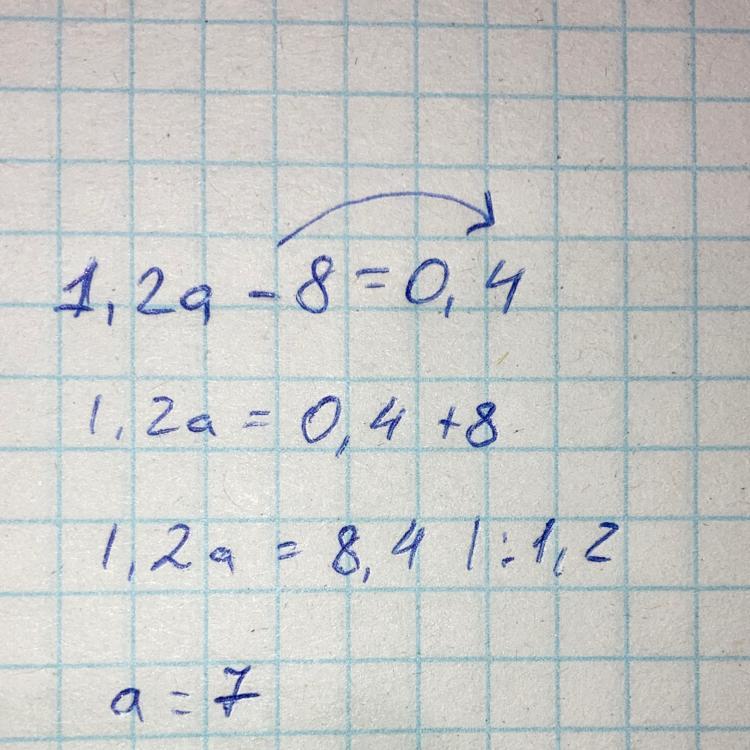 1,2a - 8 = 0,4
1,2a = 0,4 + 8
1,2a = 8,4 | : 1,2
a = 7